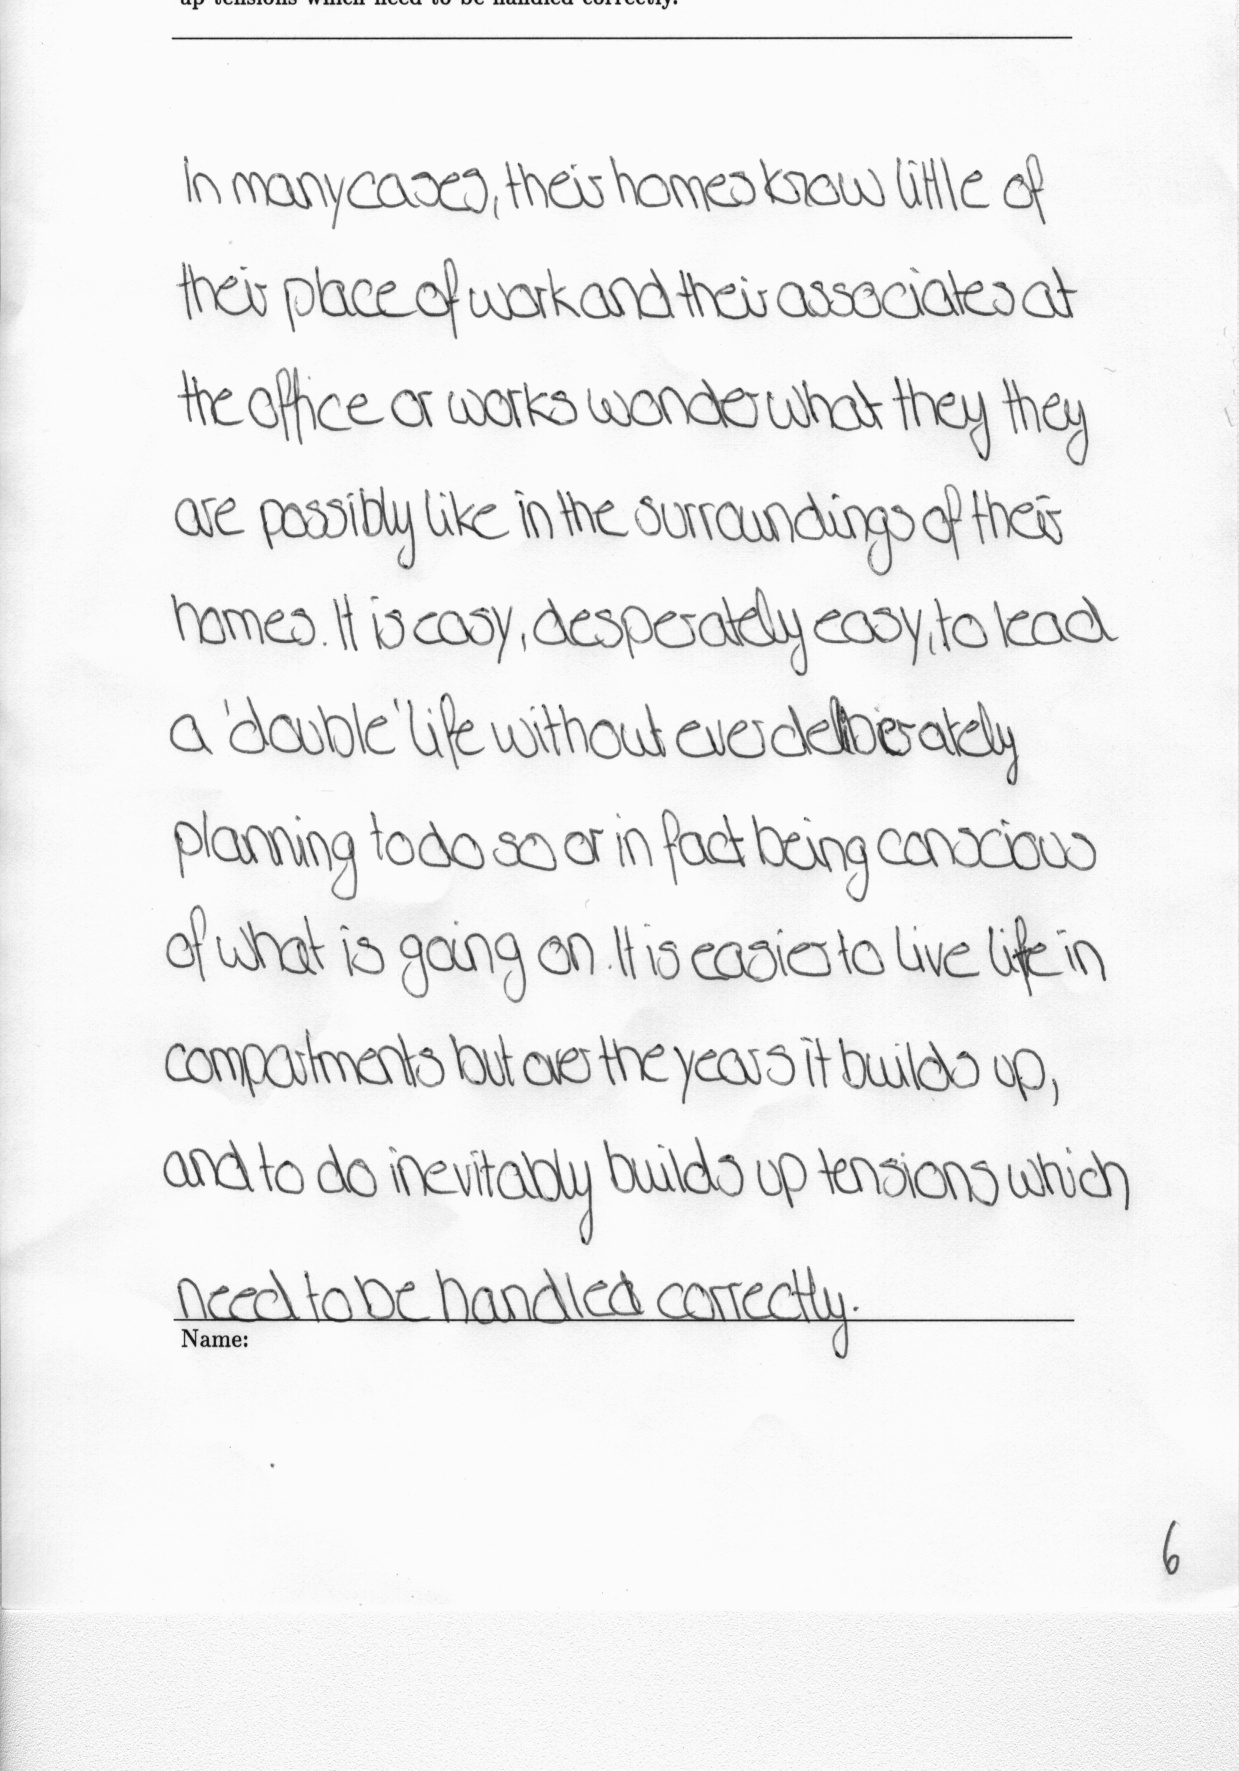 up tensions which need to be handled correctly.
In many cases, their homes know little of
their place of work and their associates at
the office or works wonder what they they
are possibly like in the surroundings of their
homes. It is easy, desperately easy, to lead
a 'double' life without ever deliberately
planning to do so or in fact being conscious
of what is going on. It is easier to live life in
compartments but over the years it builds up,
and to do inevitably builds up tensions which
need to be handled correctly.
Name:
6